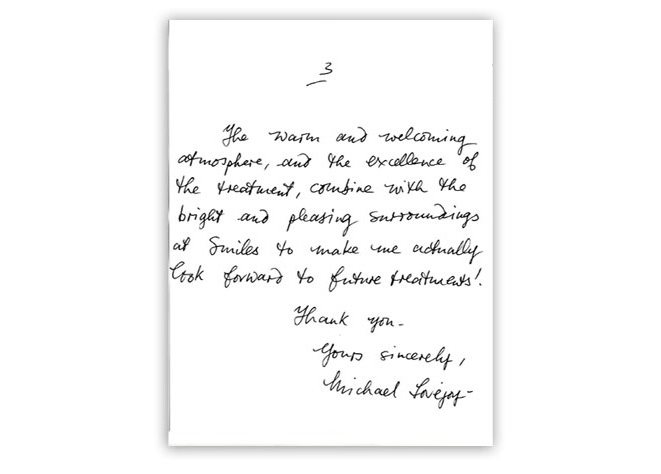 3
The warm and welcoming
atmosphere, and the excellence of
the treatment, combine with the
bright and pleasing surroundings
at Smiles to make me actually
look forward to future treatments!
Thank you-
Yours sincerely,
Michael Lovejoy-